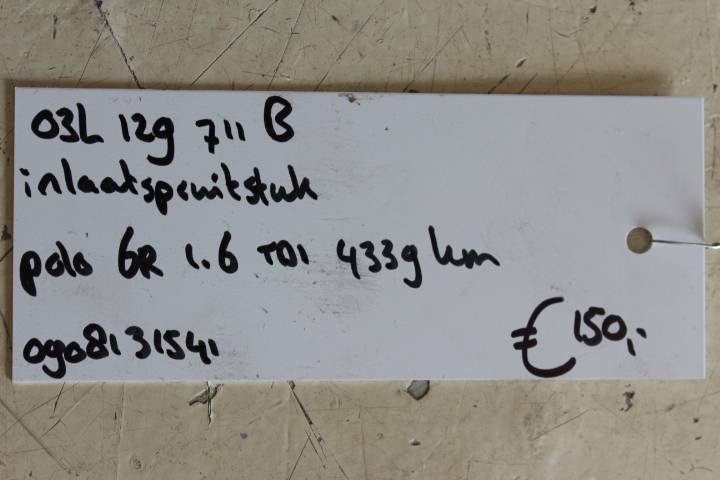 03L 129 711 B
inlaatspruitstuk
polo 6R 1.6 TDI 4339 km
0908131541
€150,-